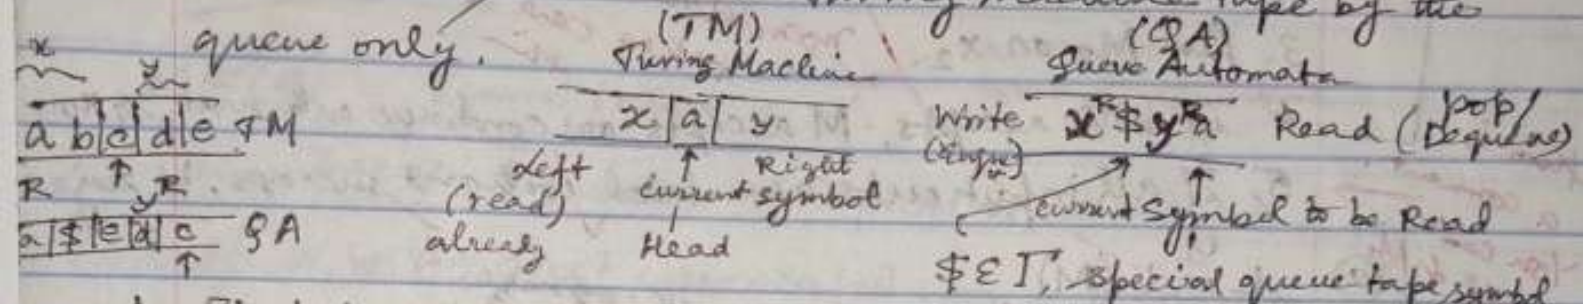 Turing Machine tape by the
queue only.
(TM) (QA)
Turing Machine Queue Automata
x y
a b|c|d|e TM x|a|y Write x^R $ y^R a Read (pop/Dequeue)
(Enqueue)
↑ Left ↑ Right ↑
R y^R (read) current symbol current symbol to be Read
a|$|e|d|c QA already Head
↑ $ ε Γ, special queue tape symbol